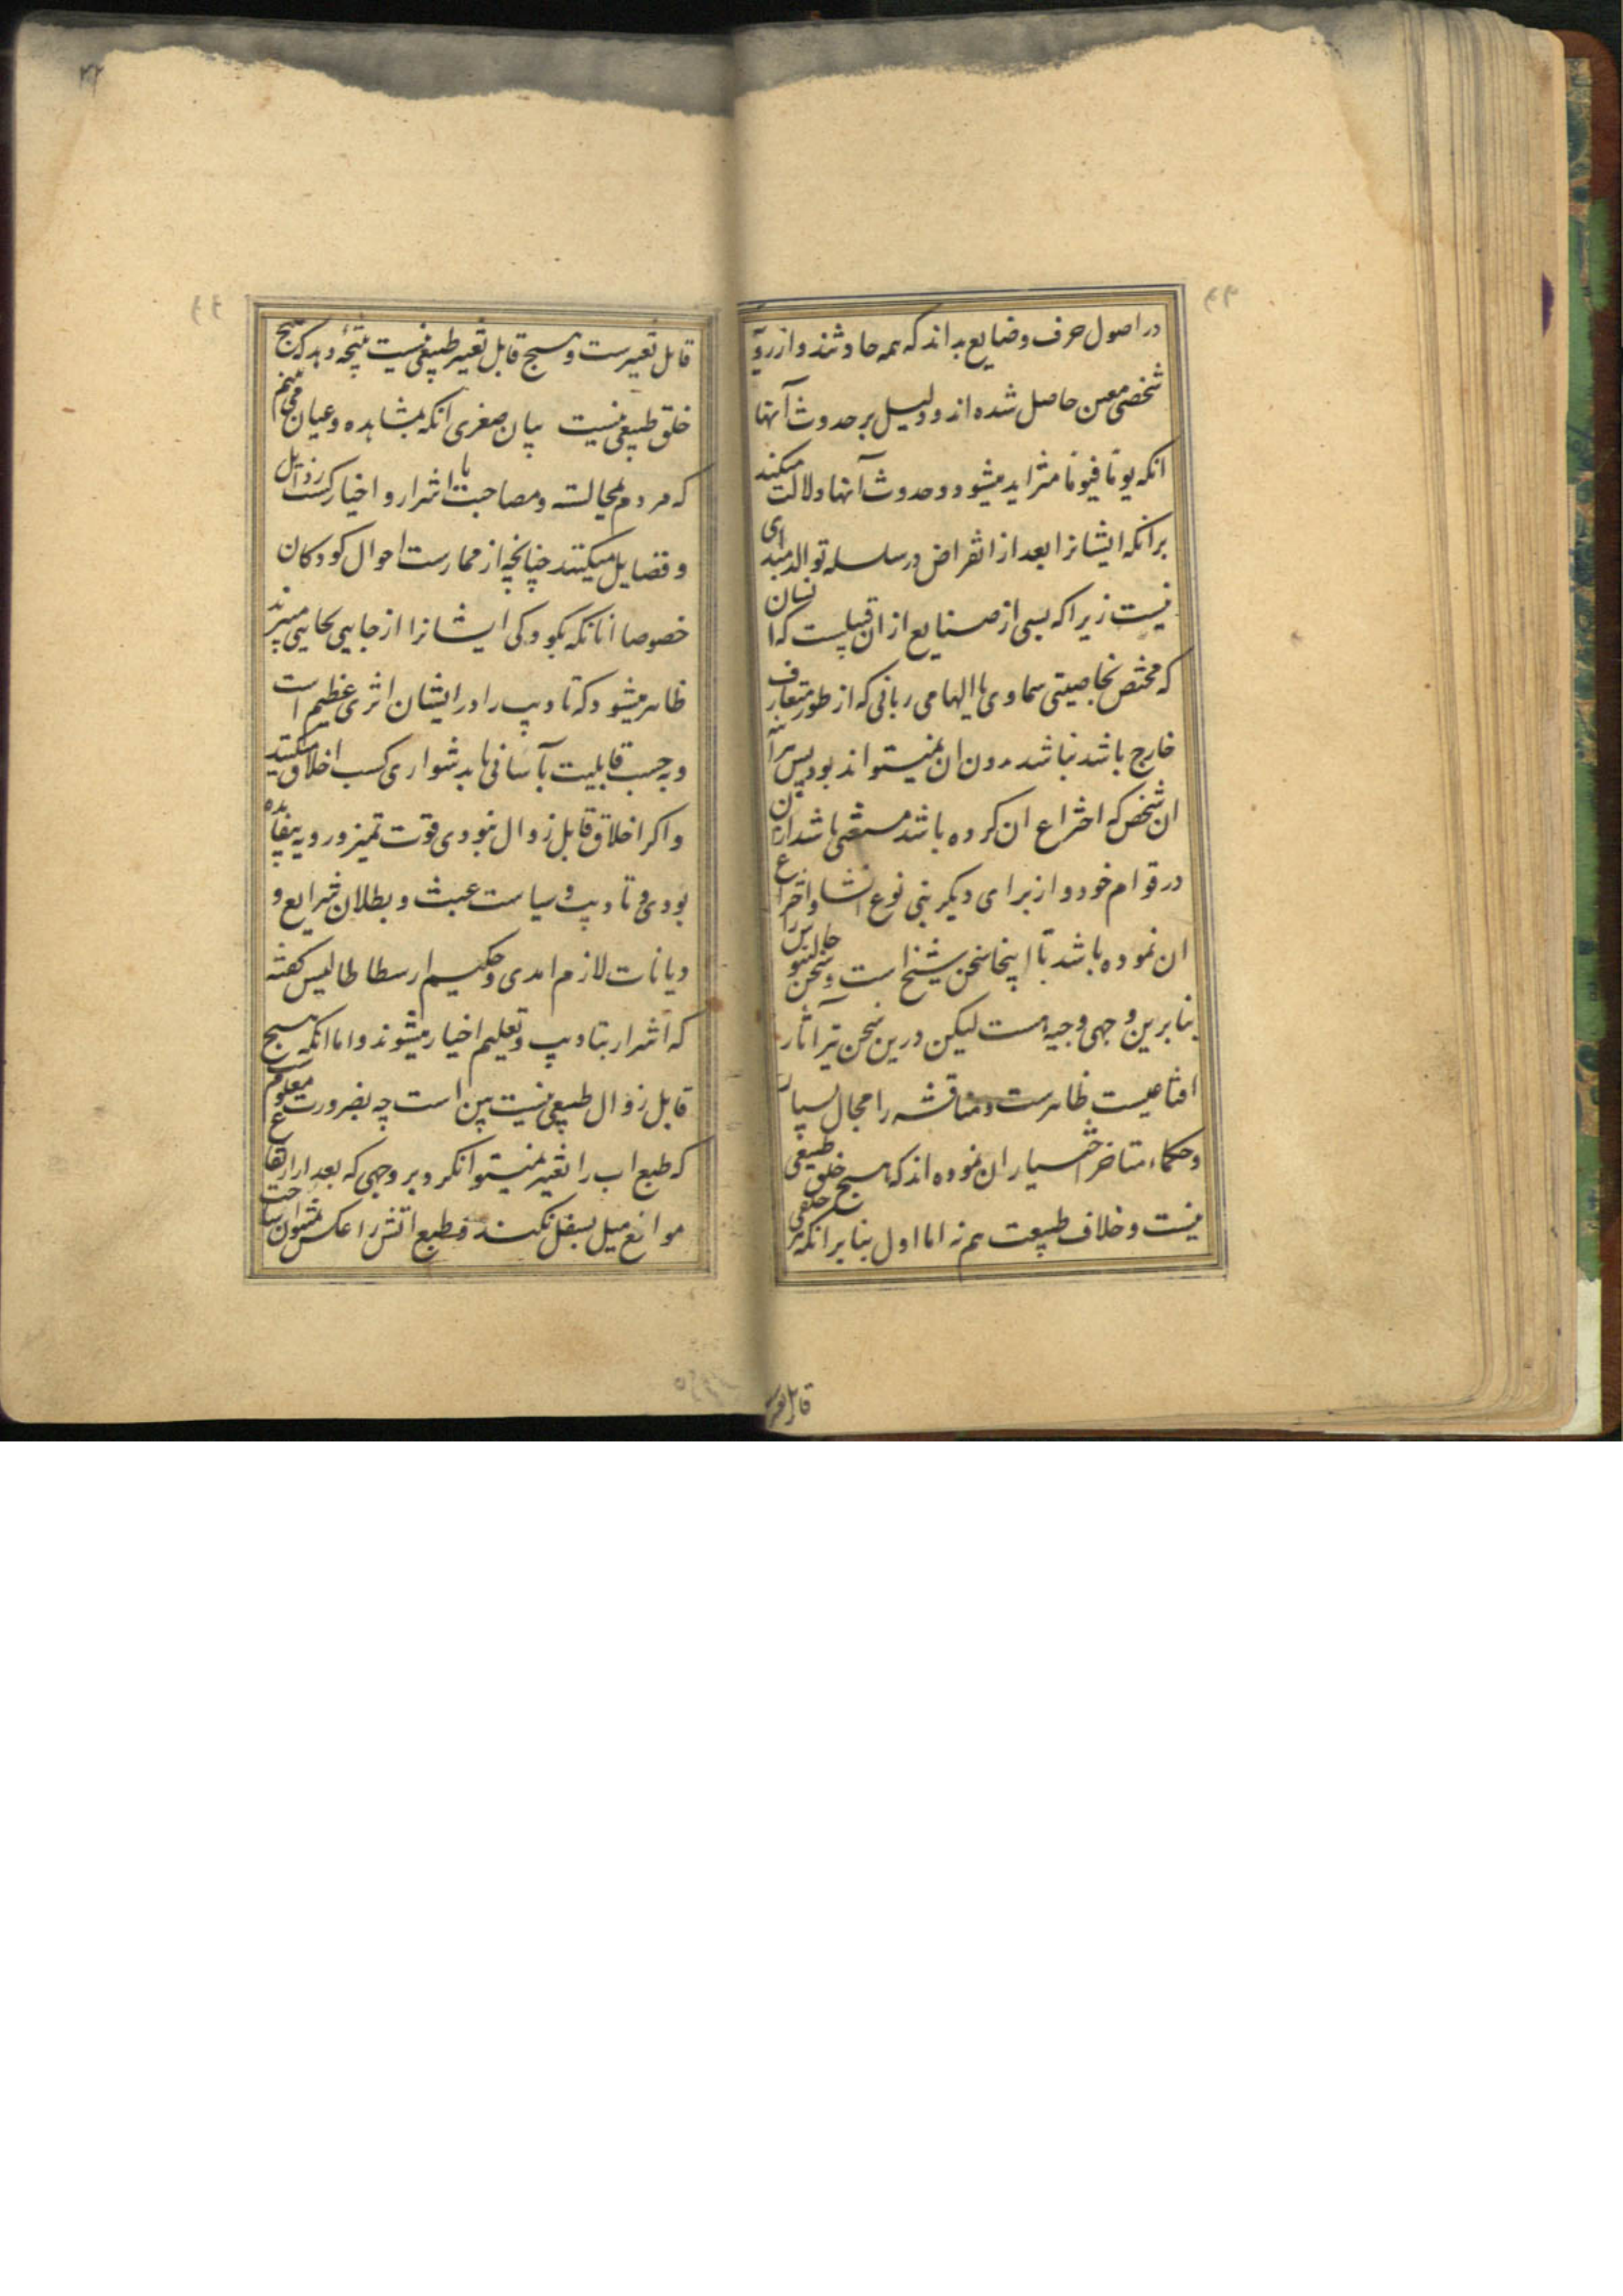 در اصول حرف و صنایع بداند که همه حادثند و از رویّه
شخصی معین حاصل شده اند و دلیل بر حدوث آنها
انکه یوما فیوما متزاید میشود و حدوث آنها دلالت میکند
برانکه ایشانرا بعد از انقراض در سلسله توالد مبدای
نیست زیرا که بسی از صنایع از ان قبیلست که انسان
که مختص بخاصیتی سماوی یا الهامی ربانی که از طور متعارف
خارج باشد نباشد بدون ان نمیتواند بود پس هرآینه
ان شخص که اختراع ان کرده باشد مستغنی باشد ازان
در قوام خود و از برای دیگر بنی نوع انشا و اختراع
ان نموده باشد تا اینجا سخن شیخ است و سخن جالینوس را
بنابرین وجهی وجیه است لیکن درین سخن نیز آثار
اقناعیست ظاهرست و مناقشه را مجال بسیار
و حکماء متاخر اختیار ان نموده اند که هیچ خلق طبیعی
نیست و خلاف طبیعت هم نه اما اول بنابر انکه هر خلقی
قابل تغیر
قابل تغیرست و هیچ قابل تغیر طبیعی نیست نتیجه دهد که هیچ
خلق طبیعی نیست بیان صغری انکه بمشاهده و عیان می بینم
که مردم بمجالسته و مصاحبت با اشرار و اخیار کسب رذایل
و فضایل میکنند چنانچه از ممارست احوال کودکان
خصوصا انانکه بکودکی ایشانرا از جایی بجایی میبرند
ظاهر میشود که تادیب را در ایشان اثری عظیم است
و بحسب قابلیت بآسانی یا بدشواری کسب اخلاق میکنند
و اکر اخلاق قابل زوال نبودی قوت تمیز و رویه بیفایده
بودی و تادیب و سیاست عبث و بطلان شرایع و
دیانات لازم امدی و حکیم ارسطاطالیس کفته
که اشرار بتادیب و تعلیم اخیار میشوند و اما انکه هیچ
قابل زوال طبیعی نیست بین است چه بضرورت معلوم
که طبع اب را تغیر نمیتوانکرد بر وجهی که بعد از ارتفاع
موانع میل بسفل نکند و طبع اتش را عکس نمیتوان ساخت